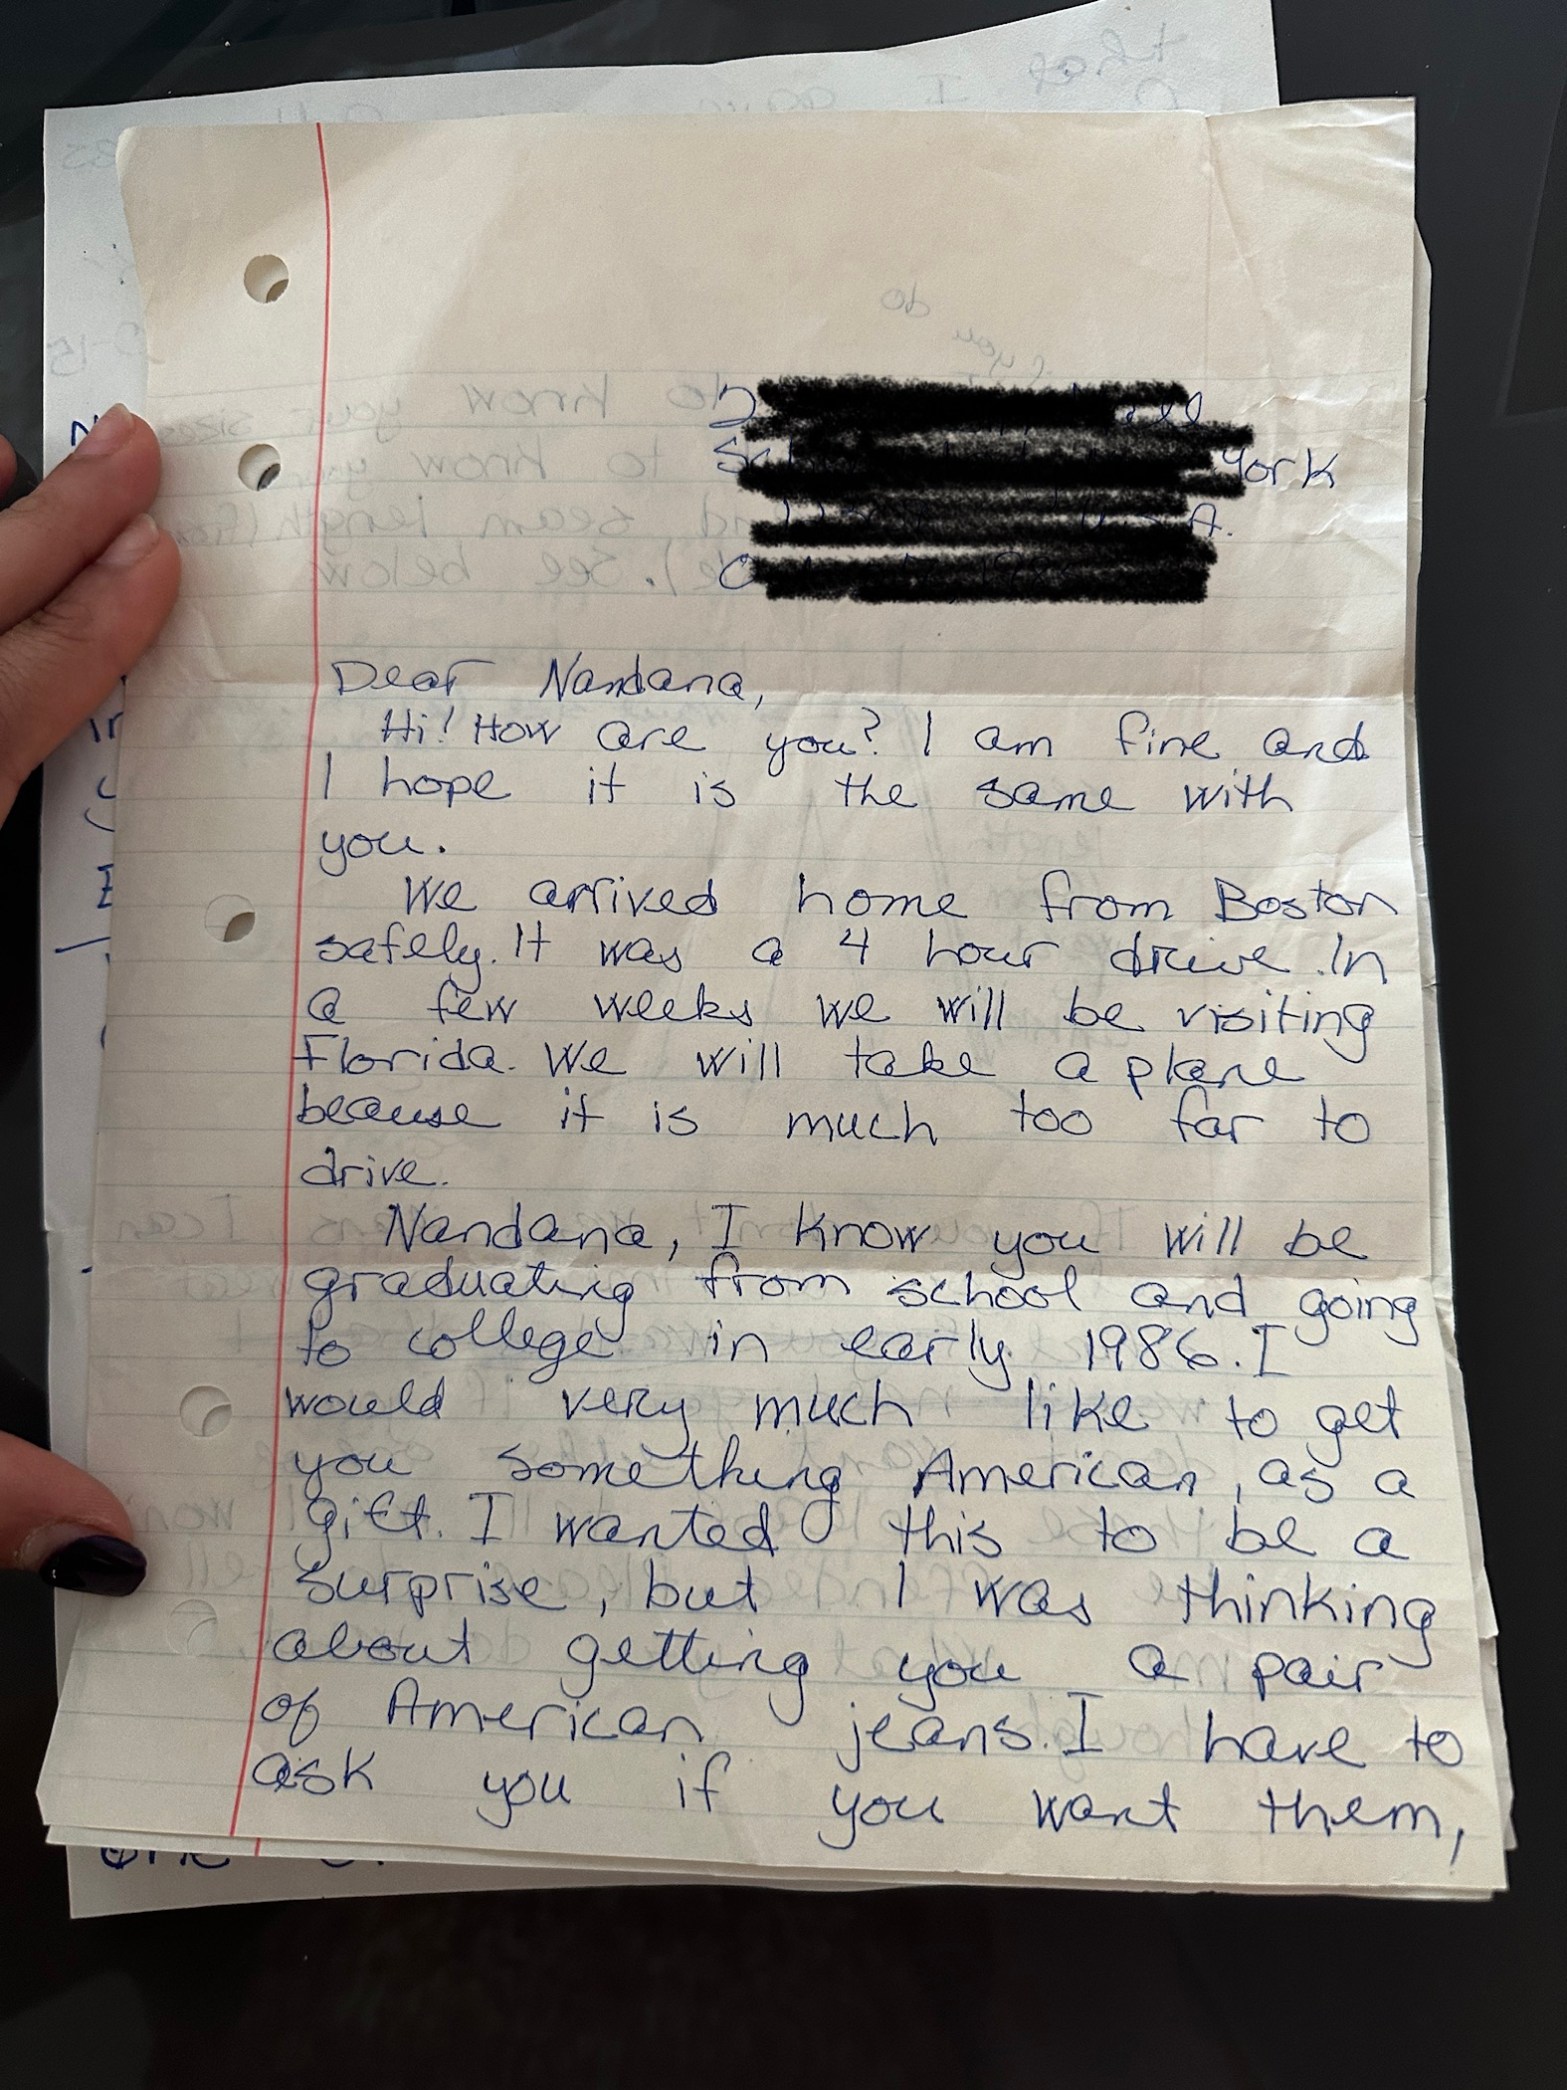 York
Dear Nandana,
Hi! How are you? I am fine and
I hope it is the same with
you.
We arrived home from Boston
safely. It was a 4 hour drive. In
a few weeks we will be visiting
Florida. We will take a plane
because it is much too far to
drive.
Nandana, I know you will be
graduating from school and going
to college in early 1986. I
would very much like to get
you something American, as a
gift. I wanted this to be a
surprise, but I was thinking
about getting you a pair
of American jeans. I have to
ask you if you want them,